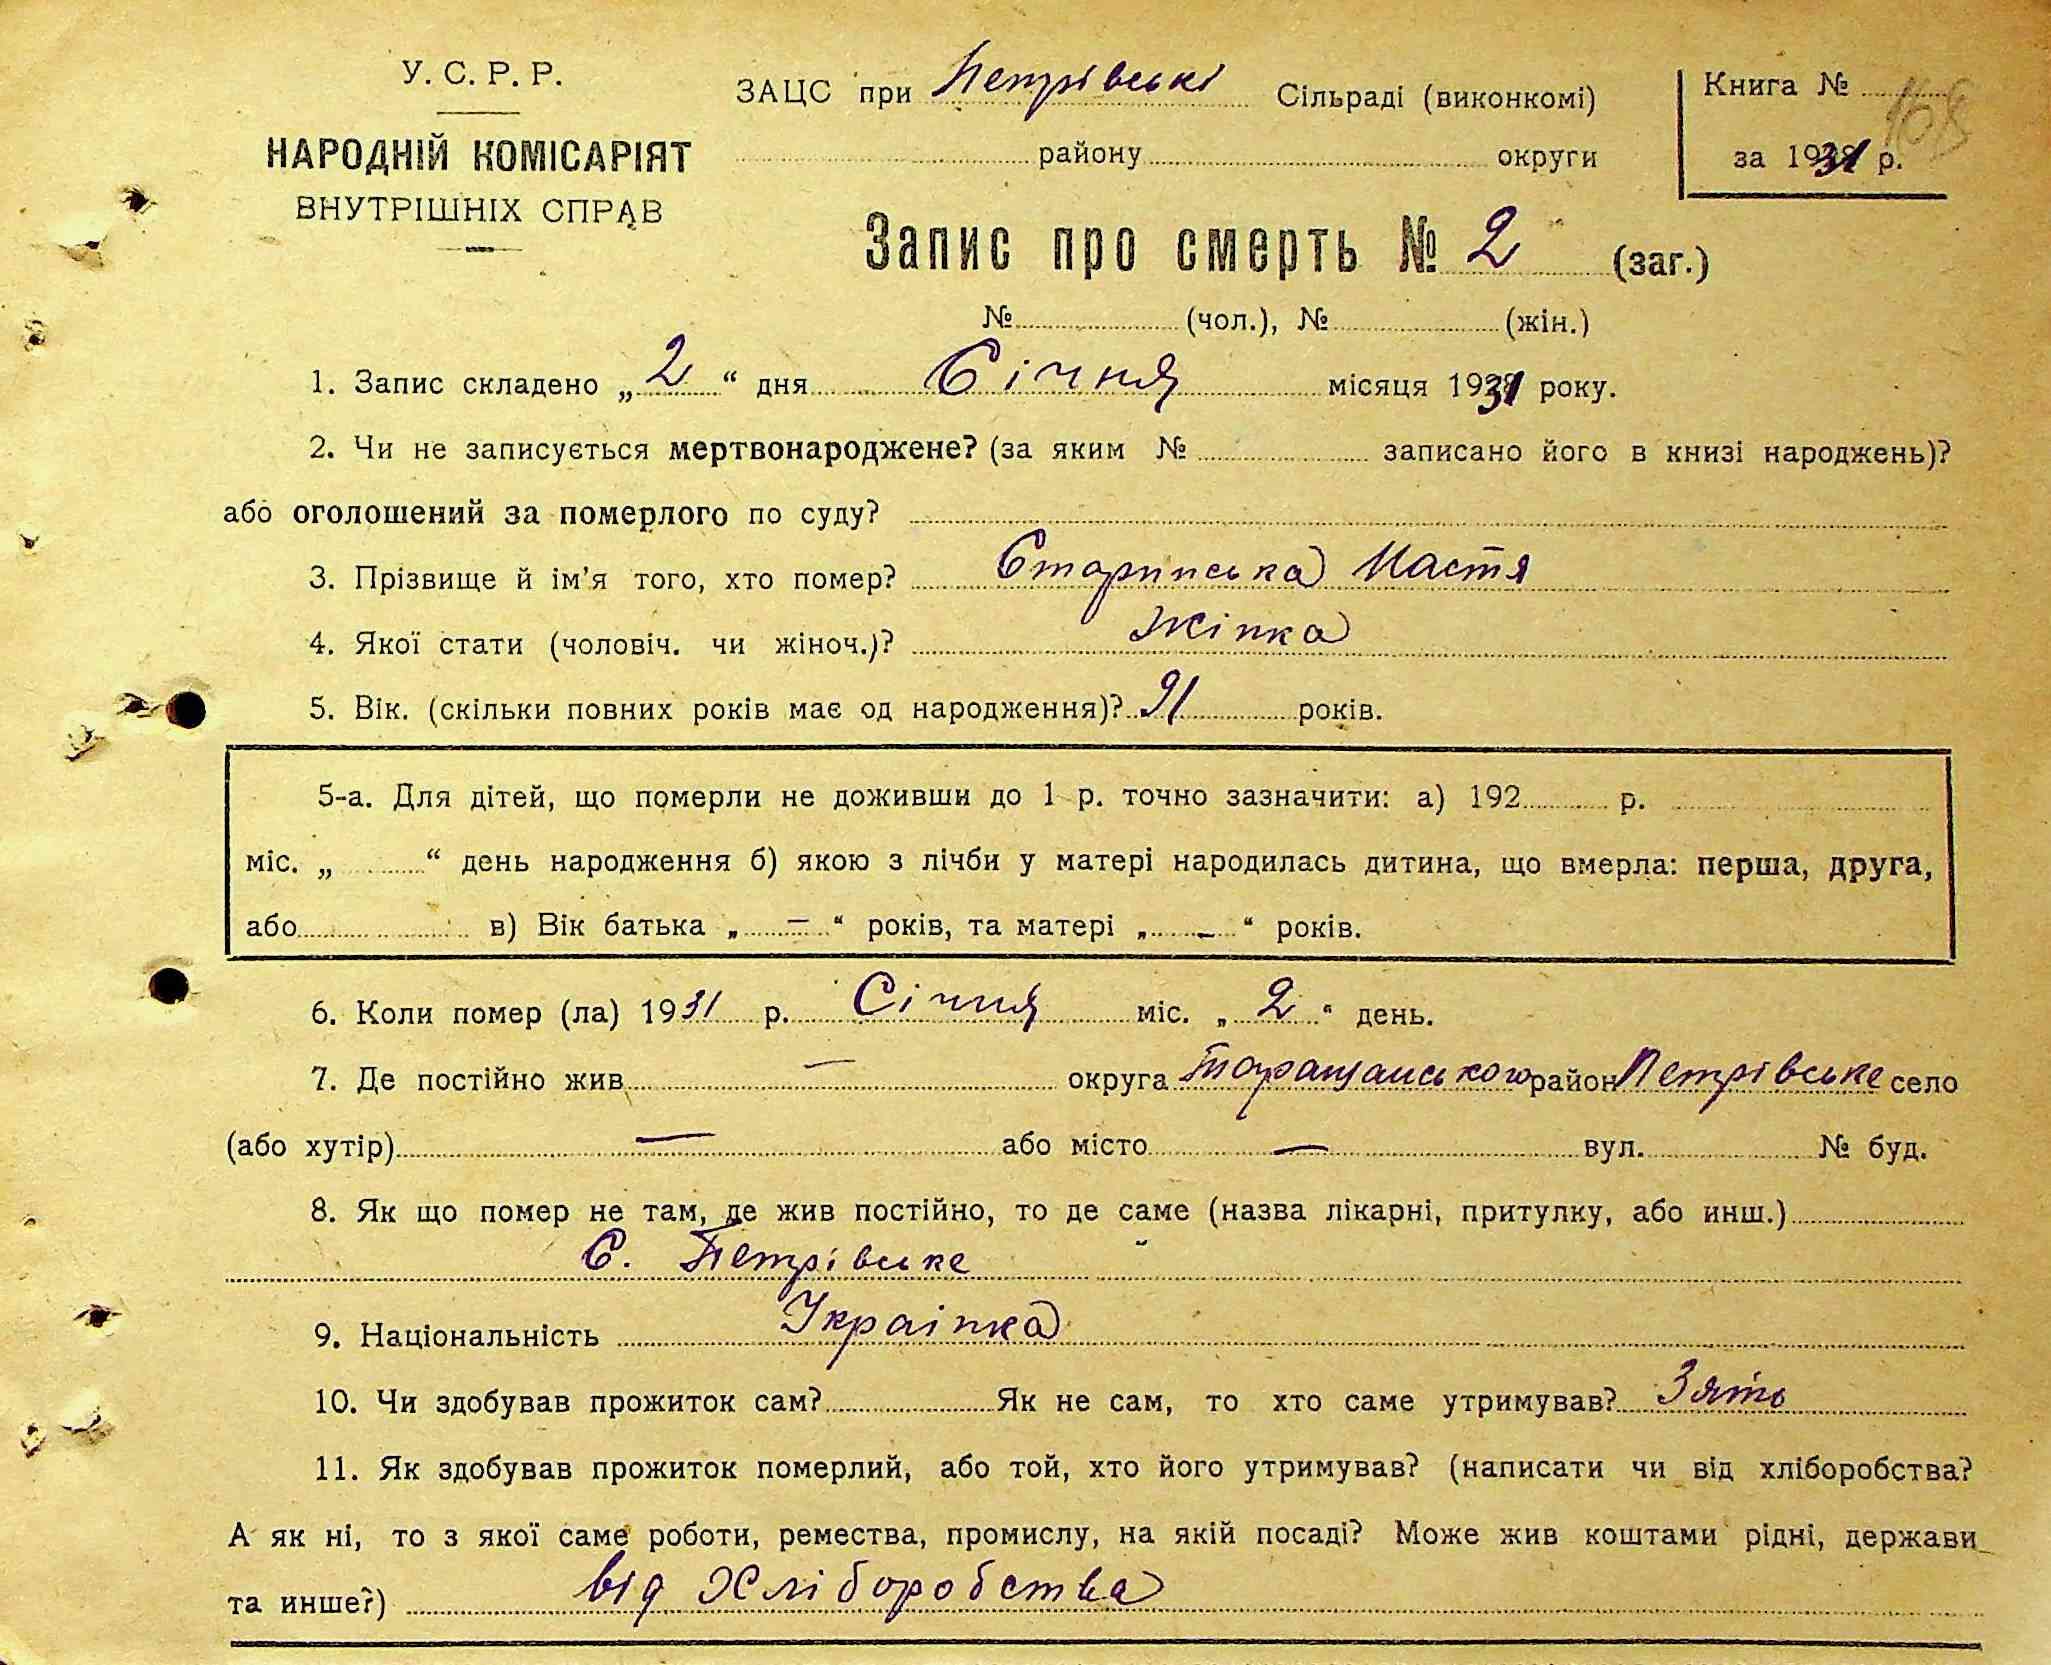 У. С. Р. Р.
НАРОДНІЙ КОМІСАРІЯТ
ВНУТРІШНІХ СПРАВ
ЗАЦС при Петрівські Сільраді (виконкомі)
району округи
Книга №
168
за 1931 р.
Запис про смерть № 2 (заг.)
№ (чол.), № (жін.)
1. Запис складено „2“ дня Січня місяця 1931 року.
2. Чи не записується мертвонароджене? (за яким № записано його в книзі народжень)?
або оголошений за померлого по суду?
3. Прізвище й ім’я того, хто помер? Старинська Настя
4. Якої стати (чоловіч. чи жіноч.)? Жінка
5. Вік. (скільки повних років має од народження)? 91 років.
5-а. Для дітей, що померли не доживши до 1 р. точно зазначити: а) 192 р.
міс. „ “ день народження б) якою з лічби у матері народилась дитина, що вмерла: перша, друга,
або в) Вік батька „ – “ років, та матері „ – “ років.
6. Коли помер (ла) 1931 р. Січня міс. „2“ день.
7. Де постійно жив — округа Таращанського район Петрівське село
(або хутір) — або місто — вул. № буд.
8. Як що помер не там, де жив постійно, то де саме (назва лікарні, притулку, або инш.)
С. Петрівське
9. Національність Українка
10. Чи здобував прожиток сам? Як не сам, то хто саме утримував? Зять
11. Як здобував прожиток померлий, або той, хто його утримував? (написати чи від хліборобства?
А як ні, то з якої саме роботи, ремества, промислу, на якій посаді? Може жив коштами рідні, держави
та инше?) від Хліборобства